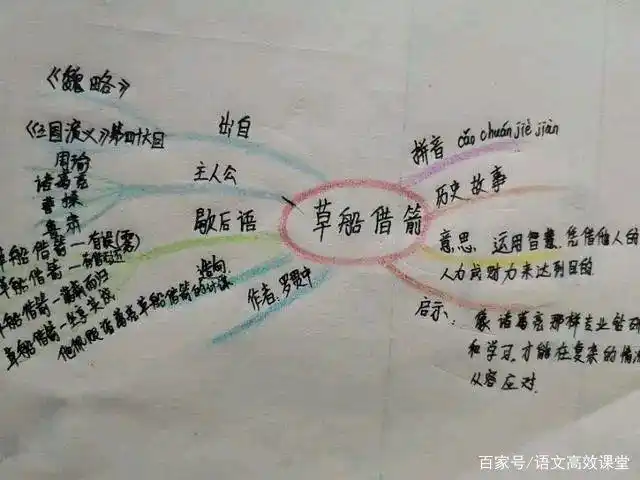 草船借箭
《魏略》
出自
《三国演义》第四十六回
主人公
周瑜
诸葛亮
曹操
鲁肃
歇后语
草船借箭一有误(雾)
草船借箭一有借无还
草船借箭一满载而归
草船借箭一坐享其成
他佩服诸葛亮草船借箭的计谋
造句
作者:罗贯中
拼音 cǎo chuán jiè jiàn
历史故事
意思:运用智慧,凭借他人的
人力或财力来达到目的
启示:像诸葛亮那样专业钻研
和学习,才能在复杂的情况
从容应对.
百家号/语文高效课堂